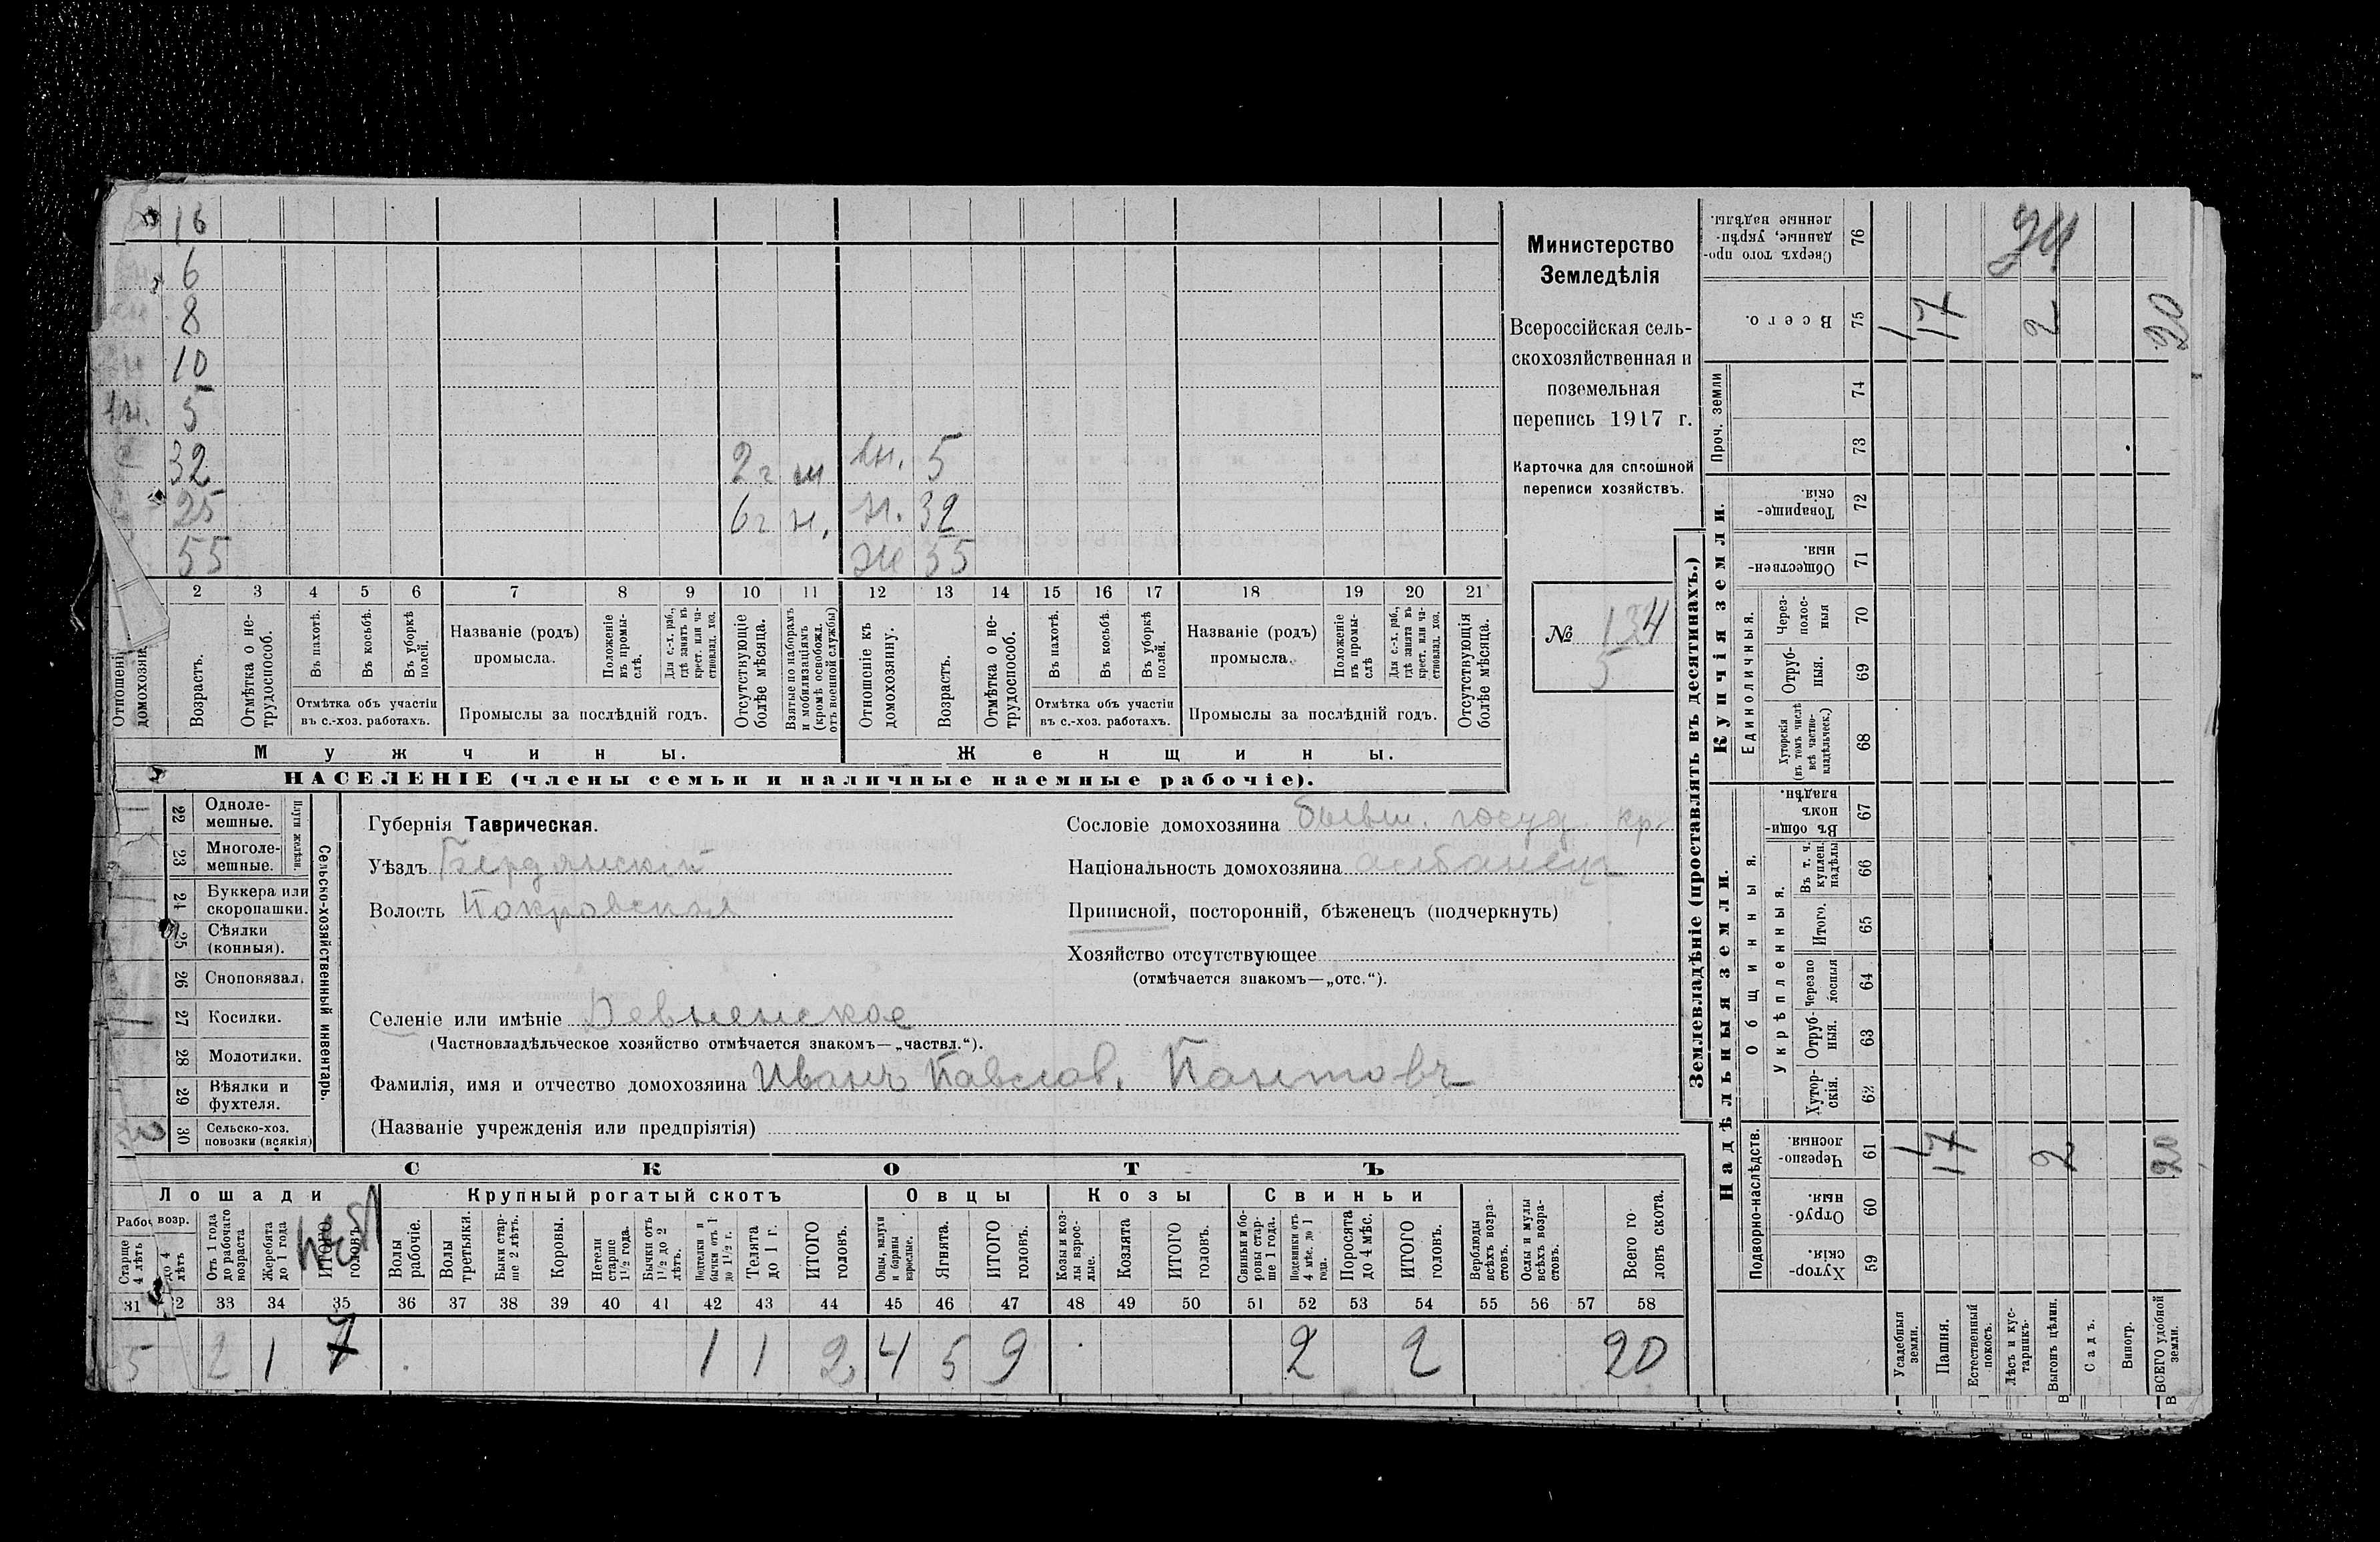 16
6
8
10
5
32 2 г н
ж. 5
25 6 г н. н. 32
55 ж 55
2 3 4 5 6 7 8 9 10 11 12 13 14 15 16 17 18 19 20 21
Отношеніе домохозяи
Возрастъ.
Отмѣтка о нетрудоспособ.
Въ пахотѣ.
Въ косьбѣ.
Въ уборкѣ полей.
Отмѣтка объ участіи
въ с.-хоз. работахъ.
Названіе (родъ)
промысла.
Положеніе въ промыслѣ.
Для с.-х. раб., гдѣ занятъ въ крест. или частновлад. хоз.
Промыслы за послѣдній годъ.
Отсутствующіе болѣе мѣсяца.
Взятые по наборамъ и мобилизаціямъ (кромѣ освобожд. отъ военной службы)
Отношеніе къ домохозяину.
Возрастъ.
Отмѣтка о нетрудоспособ.
Въ пахотѣ.
Въ косьбѣ.
Въ уборкѣ полей.
Отмѣтка объ участіи
въ с.-хоз. работахъ.
Названіе (родъ)
промысла.
Положеніе въ промыслѣ
Для с.-х. раб., гдѣ занята въ крест. или частновлад. хоз.
Промыслы за послѣдній годъ.
Отсутствующія болѣе мѣсяца.
Мужчины.
Женщины.
НАСЕЛЕНІЕ (члены семьи и наличные наемные рабочіе).
Министерство
Земледѣлія
Всероссійская сель-
скохозяйственная и
поземельная
перепись 1917 г.
Карточка для сплошной
переписи хозяйствъ.
№ 134
5
22 Одноле-
мешные.
23 Многоле-
мешные.
Плуги желѣзн.
24 Буккера или
скоропашки.
25 Сѣялки
(конныя).
26 Сноповязал.
27 Косилки.
28 Молотилки.
29 Вѣялки и
фухтеля.
30 Сельско-хоз.
повозки (всякія)
Сельско-хозяйственный инвентарь.
Губернія Таврическая.
Уѣздъ Бердянскій
Волость Покровская
Сословіе домохозяина бывш. госуд. кр.
Національность домохозяина албанецъ
Приписной, посторонній, бѣженецъ (подчеркнуть)
Хозяйство отсутствующее
(отмѣчается знакомъ—„отс.“).
Селеніе или имѣніе Девненское
(Частновладѣльческое хозяйство отмѣчается знакомъ—„частвл.“).
Фамилія, имя и отчество домохозяина Иванъ Павлов. Пантовъ
(Названіе учрежденія или предпріятія)
СКОТЪ
Лошади
Крупный рогатый скотъ
Овцы
Козы
Свиньи
Рабоч возр.
Старше 4 лѣтъ
до 4 лѣтъ
Отъ 1 года до рабочаго возраста
Жеребята до 1 года
ИТОГО головъ.
Волы рабочіе.
Волы третьяки.
Быки старше 2 лѣтъ.
Коровы.
Нетели старше 1½ года.
Бычки отъ 1½ до 2 лѣтъ.
Подтелки и бычки отъ 1 до 1½ г.
Телята до 1 г.
ИТОГО головъ.
Овцы, валухи и бараны взрослые.
Ягнята.
ИТОГО головъ.
Козы и козлы взрослые.
Козлята
ИТОГО головъ.
Свиньи и боровы старше 1 года.
Подсвинки отъ 4 мѣс. до 1 года.
Поросята до 4 мѣс.
ИТОГО головъ.
Верблюды всѣхъ возрастовъ.
Ослы и мулы всѣхъ возрастовъ.
Всего головъ скота.
31 2 33 34 35 36 37 38 39 40 41 42 43 44 45 46 47 48 49 50 51 52 53 54 55 56 57 58
5 2 1 1 1 2 4 5 9 2 2 20
Землевладѣніе (проставлять въ десятинахъ.)
Надѣльныя земли.
Купчія земли.
Проч. земли
Подворно-наслѣдств.
Общинныя.
Укрѣпленныя.
Единоличныя.
Сверхъ того проданные, укрѣпленные надѣлы. 76 24
Всего. 75 1 17 2 20
74
73
Товарищескія. 72
Общественныя. 71
Черезполосныя 70
Отрубныя. 69
Хуторскія (въ томъ числѣ всѣ частновладѣльческ.) 68
Въ общинномъ владѣн. 67
Въ т. ч. куплен. надѣлы 66
Итого. 65
Черезполосныя 64
Отрубныя. 63
Хуторскія. 62
Черезполосныя. 61 1 17 2 20
Отрубныя. 60
Хуторскія. 59
Усадебныя земли.
Пашня.
Естественный покосъ.
Лѣсъ и кустарникъ.
Выгонъ цѣлин.
Садъ.
Виногр.
ВСЕГО удобной земли.